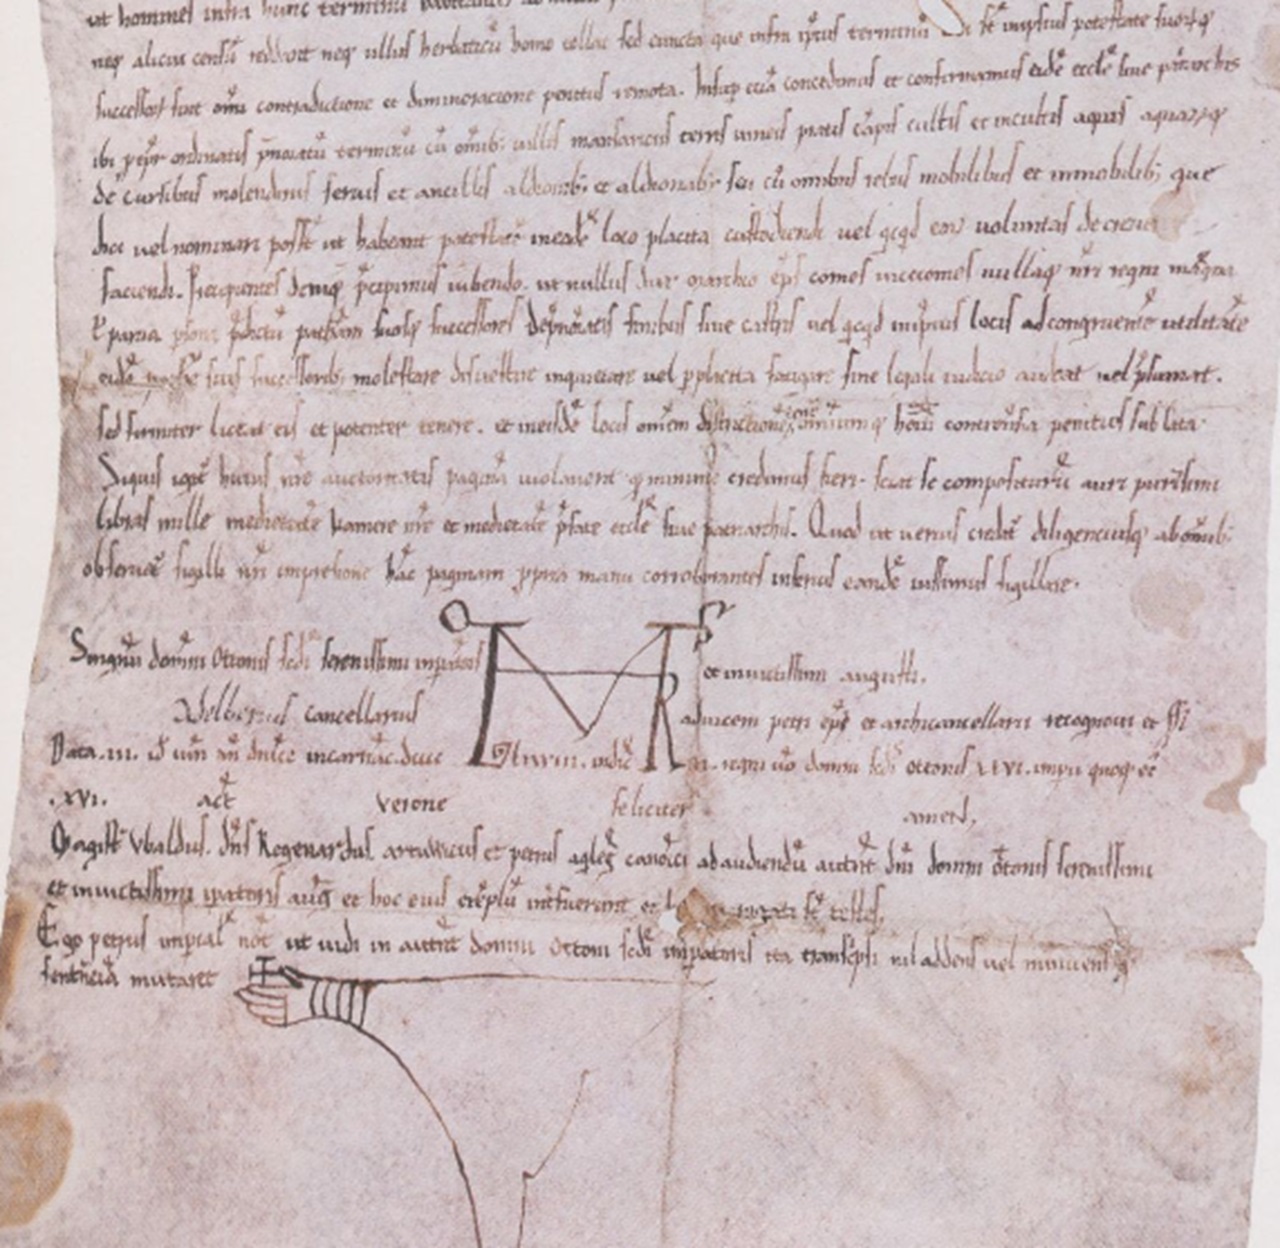 ut homines infra hunc terminū
neq; alicui censū reddant neq; ullus herbaticū homo tollat sed cuncta que infra ipsius terminū st̄ in ipsius potestate suorūq;
successorū sint om̄i contradictione et diminoracione penitus remota. Insup etiā concedimus et confirmamus eidē eccłe sive patriarchis
ibi p tēpr ordinatis p̄nōiatū terminū cū om̄ib; uillis mansionciis terris uineis pratis cāpis cultis et incultis aquis aquarūq;
de cursibus molendinis seruis et ancillis aldionib; et aldianab; seu cū omnibus rebus mobilibus et inmobilib; que
dici uel nominari possēt ut habeant potestatē in eadē loco placita custodiendi uel qcqd eorū voluntas decreuerit
faciendi. Precipientes deniq; p̄cipimus iubendo. ut nullus dux marchio ep̄s comes vicecomes nullaq; nr̄i regni magna
t parva psona p̄dictū patriarchā suosq; successores de p̄nōiatis finibus sive castris uel qcqd in ipsius locis ad congruentē utilitatē
eidē suis successorib; molestare disuestire inquietare uel p placita fatigare sine legali iudicio audeat uel p̄sumat.
sed firmiter liceat eis et potenter tenere. et in eisdē locis om̄em districtionē omniumq; hoīū controūsia penitus sublata.
Siquis igit̄ huius nr̄e auctoritatis paginā uiolauerit q minime credimus fieri. sciat se compositurū auri purissimi
libras mille medietatē kamere nr̄e et medietatē p̄fate eccłe sive patriarchis. Quod ut uerius credat̄ diligenciusq; ab om̄ib;
obseruet̄ sigilli nr̄i impressione hāc paginam ppria manu corroborantes inferius eandē iussimus sigillare.
Singnū domni Ottonis sedi serenissimi inpatoris et inuictissimi augusti.
Adelberius cancellarius ad uicem petri ep̄i et archicancellarii recognoui et ss̄i
Data. III. id̄ iun̄ an̄ dn̄ice incarnac. dccc Lxxxiii. indic̄ xi. regni uō domni sedi ottonis xxvi. imperii quoq; ei
.XVI. act̄ verone feliciter amen.
Magist̄ Vbaldus. dn̄s Regenardus. artuwicus et petrus aqleg̃ canōici ad audiendū autēt dn̄i domni ōtonis serenissimi
et inuictissimi ipatoris aug̃ et hoc eius exēplū int̄fuerunt et rogati st̄ testes.
Ego petrus imperial not̄ ut uidi in autēt domni Ottoni sedi inpatoris ita transcpsi nil addens uel minuens q
sentēciā mutaret